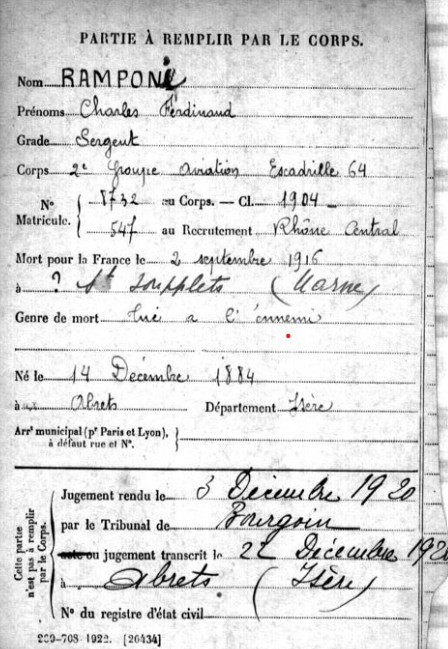 PARTIE À REMPLIR PAR LE CORPS.
Nom RAMPONI
Prénoms Charles Ferdinand
Grade Sergent
Corps 2e Groupe aviation Escadrille 64
N° Matricule. { 8732 au Corps. — Cl. 1904
547 au Recrutement Rhône Central
Mort pour la France le 2 septembre 1916
à ? St Soupplets (Marne)
Genre de mort tué a l'ennemi
Né le 14 Décembre 1884
à Abrets Département Isère
Arrt municipal (pr Paris et Lyon), à défaut rue et N°. }
Cette partie n'est pas à remplir par le Corps.
Jugement rendu le 3 Décembre 1920
par le Tribunal de Bourgoin
acte ou jugement transcrit le 22 Décembre 192
à Abrets (Isère)
N° du registre d'état civil
708 1922. [26434]